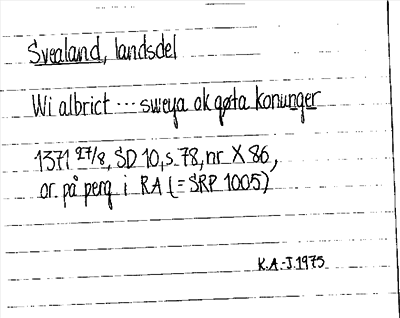 Svealand, landsdel
Wi albrict ... sweya ok gøta konunger
1371 27/8, SD 10, s. 78, nr X 86,
or. på perg i RA (= SRP 1005)
K.A.-J. 1975